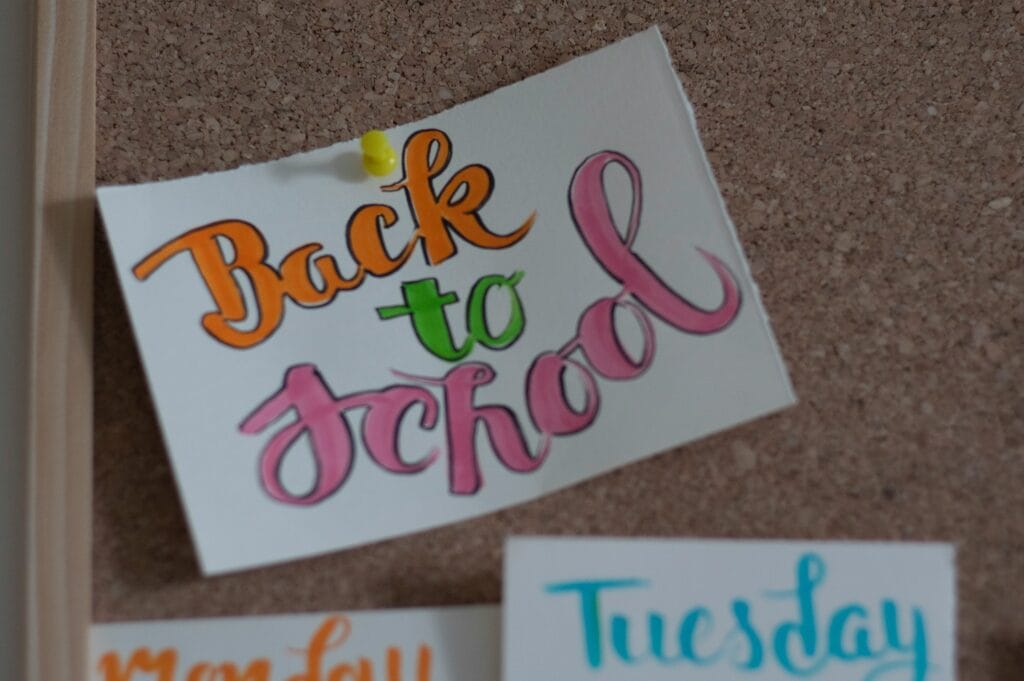 Back
to
School
monday
Tuesday